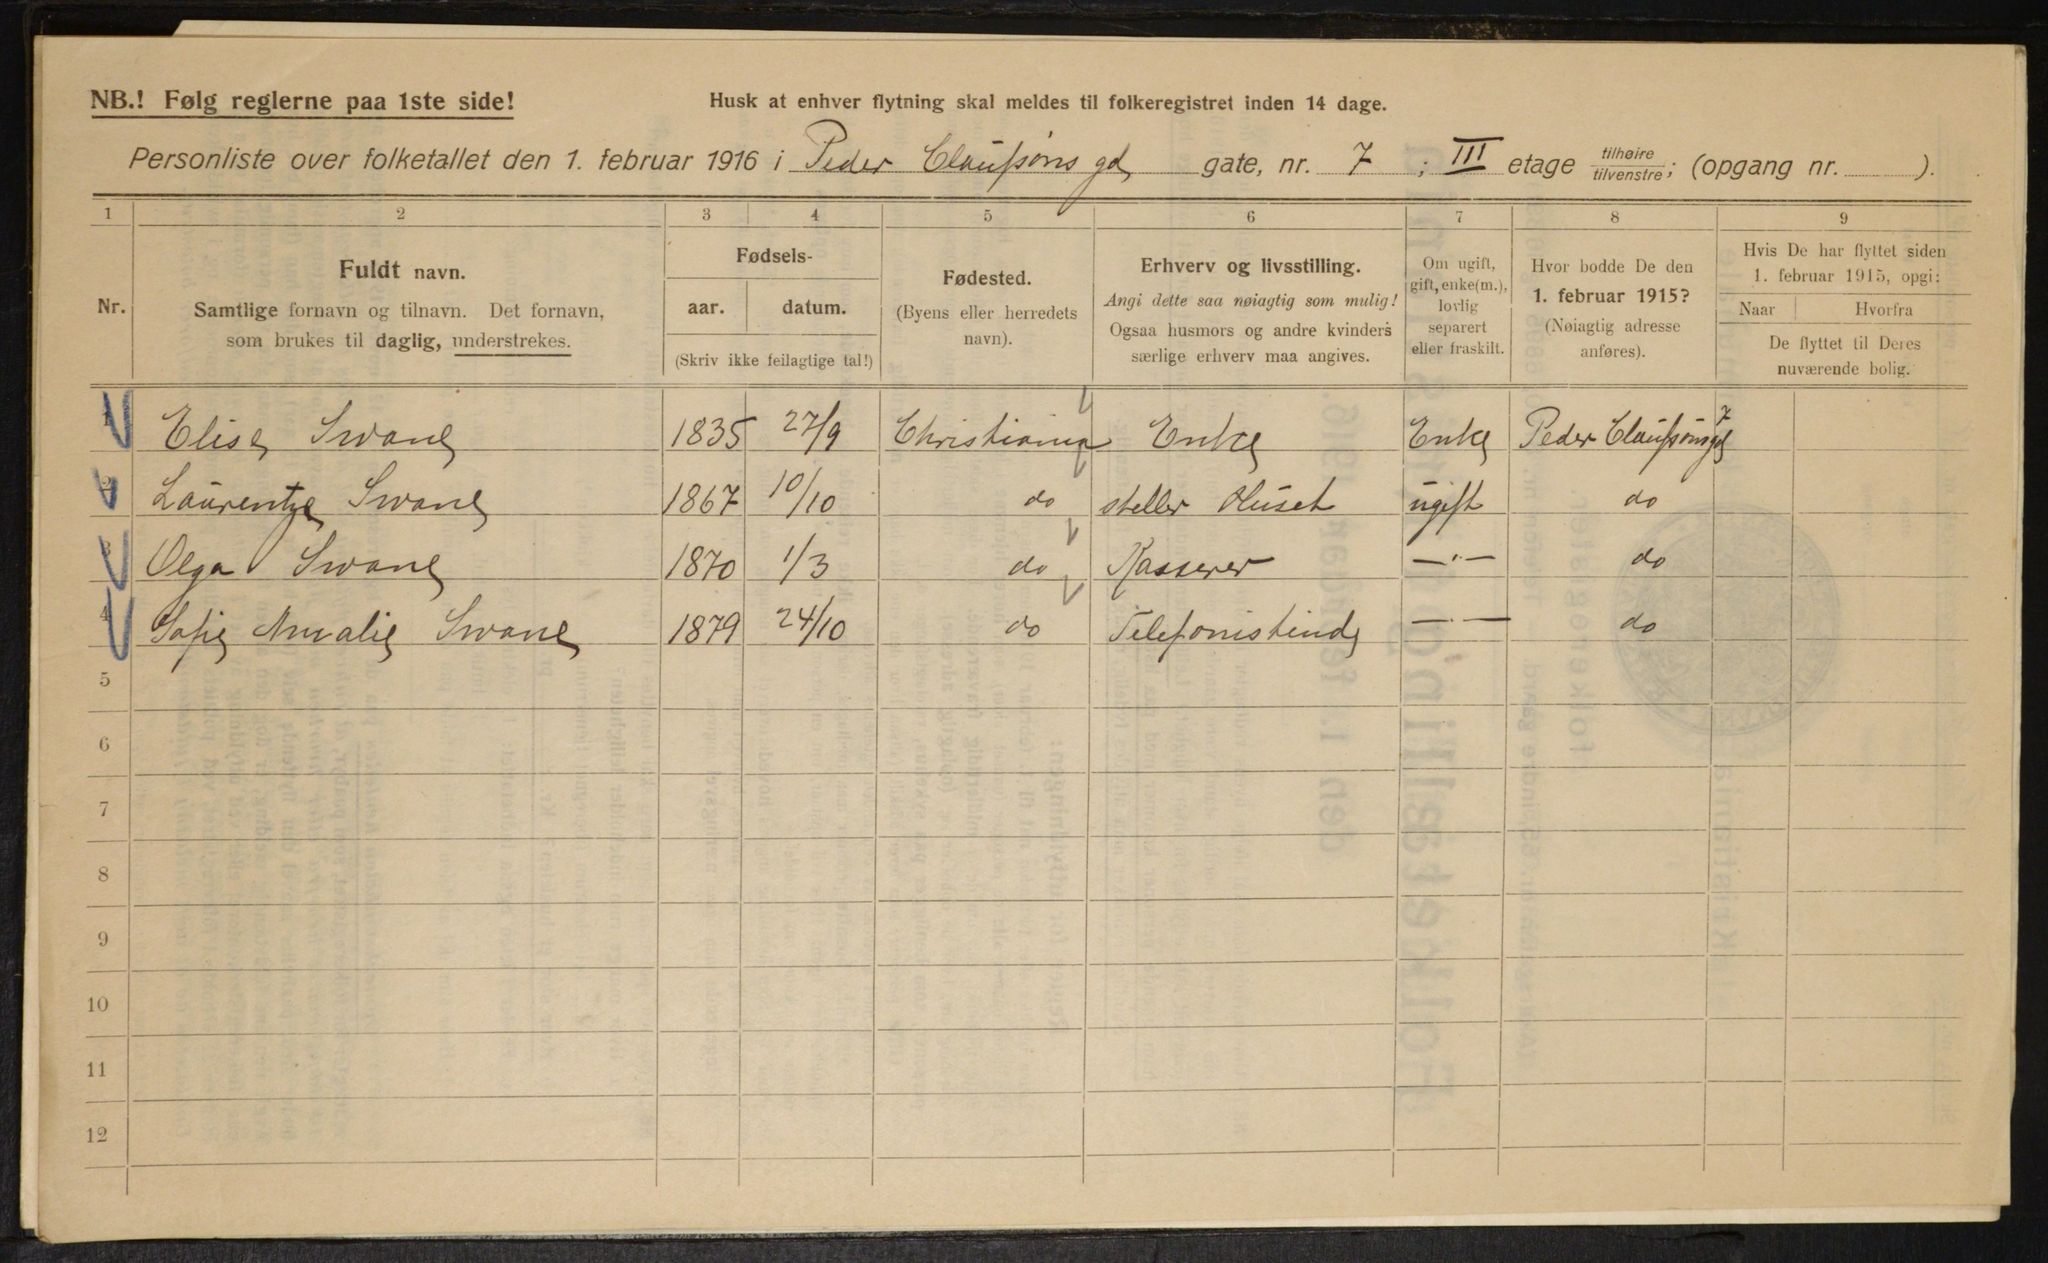 NB.! Følg reglerne paa 1ste side!
Husk at enhver flytning skal meldes til folkeregistret inden 14 dage.
Personliste over folketallet den 1. februar 1916 i Peder Claussøns gd gate, nr. 7 ; III etage tilhøire/tilvenstre; (opgang nr. ).
1 2 3 4 5 6 7 8 9
Nr.
Fuldt navn.
Samtlige fornavn og tilnavn. Det fornavn,
som brukes til daglig, understrekes.
Fødsels-
aar. datum.
(Skriv ikke feilagtige tal!)
Fødested.
(Byens eller herredets
navn).
Erhverv og livsstilling.
Angi dette saa nøiagtig som mulig!
Ogsaa husmors og andre kvinders
særlige erhverv maa angives.
Om ugift,
gift, enke(m.),
lovlig
separert
eller fraskilt.
Hvor bodde De den
1. februar 1915?
(Nøiagtig adresse
anføres).
Hvis De har flyttet siden
1. februar 1915, opgi:
Naar Hvorfra
De flyttet til Deres
nuværende bolig.
1 Elise Swane 1835 27/9 Christiania Enke Enke Peder Claussønsgd 7
2 Laurentze Swane 1867 10/10 do steller Huset ugift do
3 Olga Swane 1870 1/3 do Kasserer —·— do
4 Sofie Amalie Swane 1879 24/10 do Telefonistinde —·— do
5
6
7
8
9
10
11
12